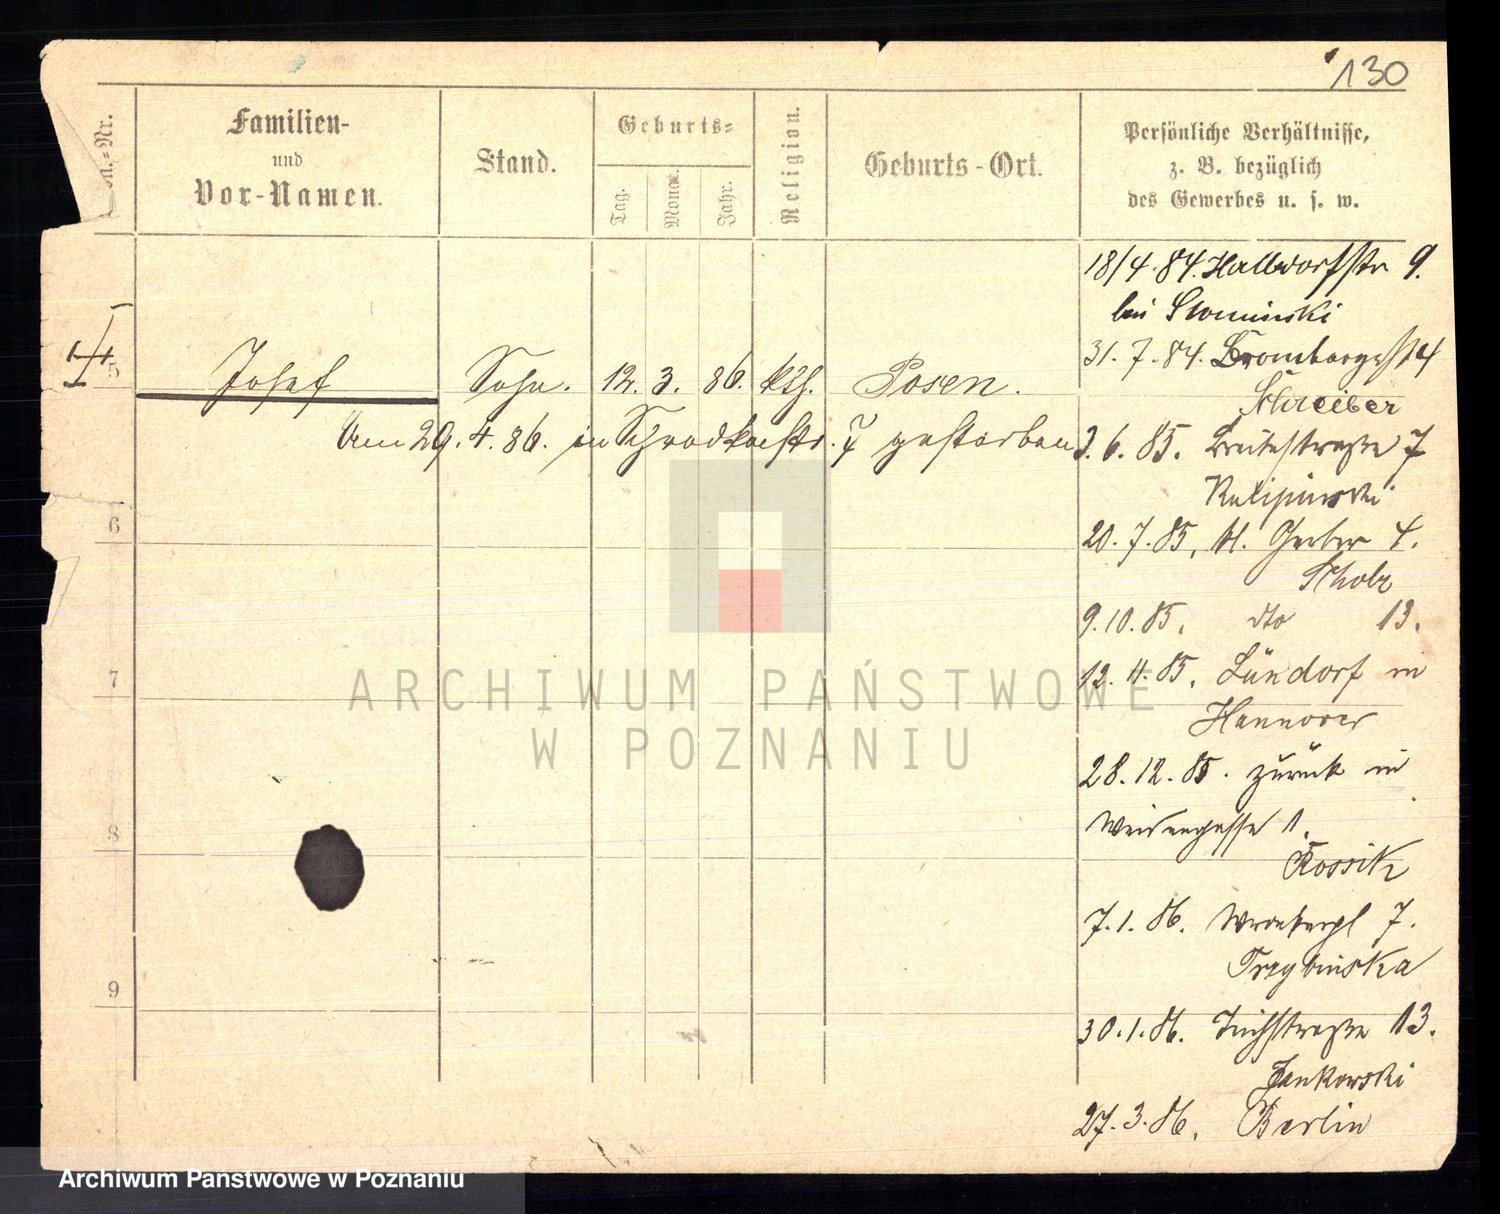 130
Familien-
und
Vor-Namen.
Stand.
Geburts-
Tag.
Monat.
Jahr.
Religion.
Geburts-Ort.
Persönliche Verhältnisse,
z. B. bezüglich
des Gewerbes u. s. w.
18/4.84. Halbdorfstr 9.
bei Slominski
5 Josef Sohn. 12. 3. 86. kth. Posen.
31. 7. 84. Brombergerst 4
Schreiber
Am 29. 4. 86. in Schrodkastr. 7 gestorben
3. 6. 85. Breitestraße 7
20. 7. 85. kl. Gerber 4.
Scholz
9. 10. 85. dto 13.
12. 11. 85. in
Hannover
28. 12. 85. zurück in
Weidengasse 1.
Kossik
7. 1. 86. 7.
Trzybinska
30. 1. 86. 13.
Jankowski
27. 3. 86. Berlin
6
7
8
9
ARCHIWUM PAŃSTWOWE
W POZNANIU
Archiwum Państwowe w Poznaniu